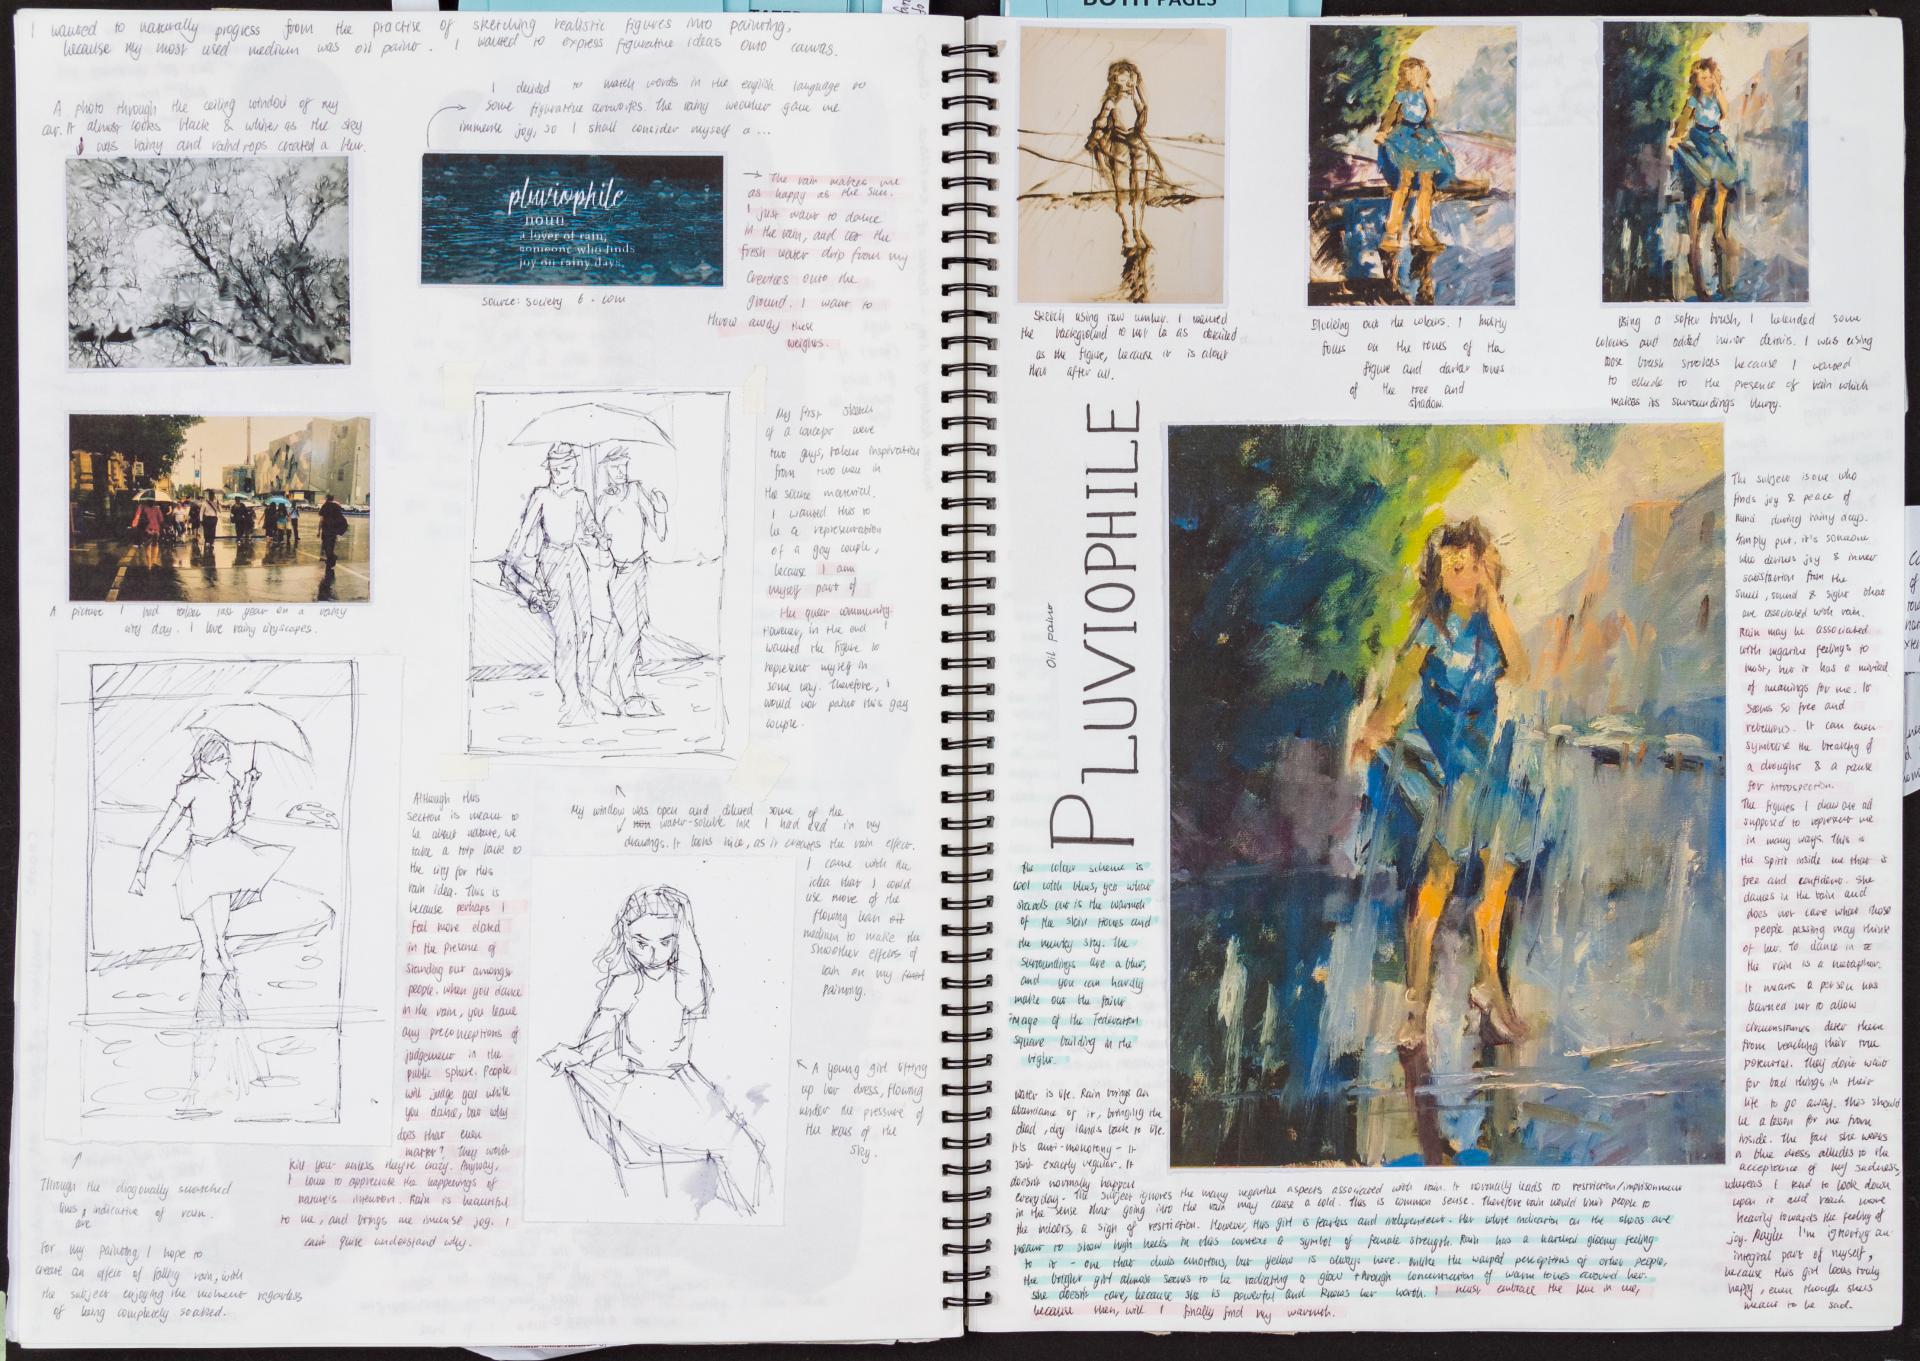 BOTH PAGES
I wanted to naturally progress from the practise of sketching realistic figures into painting,
because my most used medium was oil paint. I wanted to express figurative ideas onto canvas.
A photo through the ceiling window of my
car. It almost looks black & white as the sky
was rainy and raindrops created a blur.
I decided to match words in the english language to
some figurative artworks. The rainy weather gave me
immense joy, so I shall consider myself a ...
pluviophile
noun
a lover of rain;
someone who finds
joy on rainy days.
source: society 6 . com
→ The rain makes me
as happy as the sun.
I just want to dance
in the rain, and let the
fresh water drip from my
clothes onto the
ground. I want to
throw away these
weights.
A picture I had taken last year on a rainy
city day. I love rainy cityscapes.
My first sketch
of a concept were
two guys, taken inspiration
from two men in
the source material.
I wanted this to
be a representation
of a gay couple,
because I am
myself part of
the queer community.
However, in the end I
wanted the figure to
represent myself in
some way. Therefore, I
would not paint this gay
couple.
Although this
section is meant to
be about nature, we
take a trip back to
the city for this
rain idea. This is
because perhaps I
feel more elated
in the presence of
standing out amongst
people. When you dance
in the rain, you leave
any preconceptions of
judgement in the
public sphere. People
will judge you while
you dance, but why
does that even
matter? They won't
kill you unless they're crazy. Anyway,
I love to appreciate the happenings of
nature's intention. Rain is beautiful
to me, and brings me immense joy. I
can't quite understand why.
My window was open and diluted some of the
water-soluble ink I had used in my
drawings. It looks nice, as it creates the rain effect.
I came with the
idea that I could
use more of the
flowing lean oil
medium to make the
smoother effects of
rain on my
painting.
A young girl lifting
up her dress, flowing
under the pressure of
the tears of the
sky.
Through the diagonally sketched
lines, indicative of rain.
are
For my painting, I hope to
create an effect of falling rain, with
the subject enjoying the moment regardless
of being completely soaked.
Sketch using raw umber. I wanted
the background to not be as detailed
as the figure, because it is about
that after all.
Blocking out the colours. I mostly
focus on the tones of the
figure and darker tones
of the tree and
shadow.
Using a softer brush, I blended some
colours and added minor details. I was using
loose brush strokes because I wanted
to allude to the presence of rain which
makes its surroundings blurry.
PLUVIOPHILE
Oil paint
The colour scheme is
cool with blues, yet what
stands out is the warmth
of the skin tones and
the murky sky. The
surroundings are a blur,
and you can hardly
make out the faint
image of the Federation
square building in the
right.
Water is life. Rain brings an
abundance of it, bringing the
dead, dry lands back to life.
It's anti-monotony - it
isn't exactly regular. It
doesn't normally happen
everyday. The subject ignores the many negative aspects associated with rain. It normally leads to restriction/imprisonment
in the sense that going into the rain may cause a cold. This is common sense. Therefore rain would limit people to
the indoors, a sign of restriction. However, this girl is fearless and independent. Her white indication on the shoes are
meant to show high heels in this context a symbol of female strength. Rain has a natural gloomy feeling
to it - one that dulls emotions, but yellow is always here. Unlike the warped perceptions of other people,
the bright girl almost seems to be radiating a glow through concentration of warm tones around her.
She doesn't care, because she is powerful and knows her worth. I must embrace the blue in me,
because then, will I finally find my warmth.
The subject is one who
finds joy & peace of
mind during rainy days.
Simply put, it's someone
who derives joy & inner
satisfaction from the
smell, sound & sight that
are associated with rain.
Rain may be associated
with negative feelings to
most, but it has a myriad
of meanings for me. It
seems so free and
rebellious. It can even
symbolise the breaking of
a drought & a pause
for introspection.
The figures I draw are all
supposed to represent me
in many ways. This is
the spirit inside me that is
free and confident. She
dances in the rain and
does not care what those
people passing may think
of her. To dance in
the rain is a metaphor.
It means a person has
learned not to allow
circumstances deter them
from reaching their true
potential. They don't wait
for bad things in their
life to go away. This should
be a lesson for me from
inside. The fact she wears
a blue dress alludes to the
acceptance of my sadness,
whereas I tend to look down
upon it and reach more
heavily towards the feeling of
joy. Maybe I'm ignoring an
integral part of myself,
because this girl looks truly
happy, even though she's
meant to be sad.